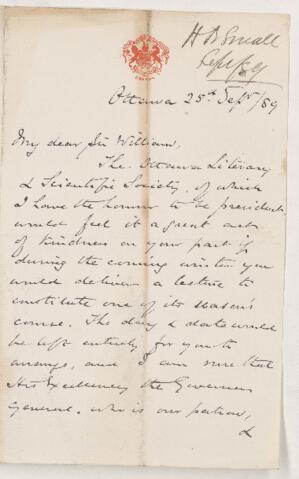 H B Small
Sept/89
Ottawa 28th Sept/89
My dear Sir William,
The Ottawa Literary
& Scientific Society, of which
I have the honour to be president
would feel it a great act
of kindness on your part if
during the coming winter you
would deliver a lecture to
constitute one of its season's
course. The day & date would
be left entirely for you to
arrange, and I am sure that
His Excellency the Governor
General, who is our patron,
&